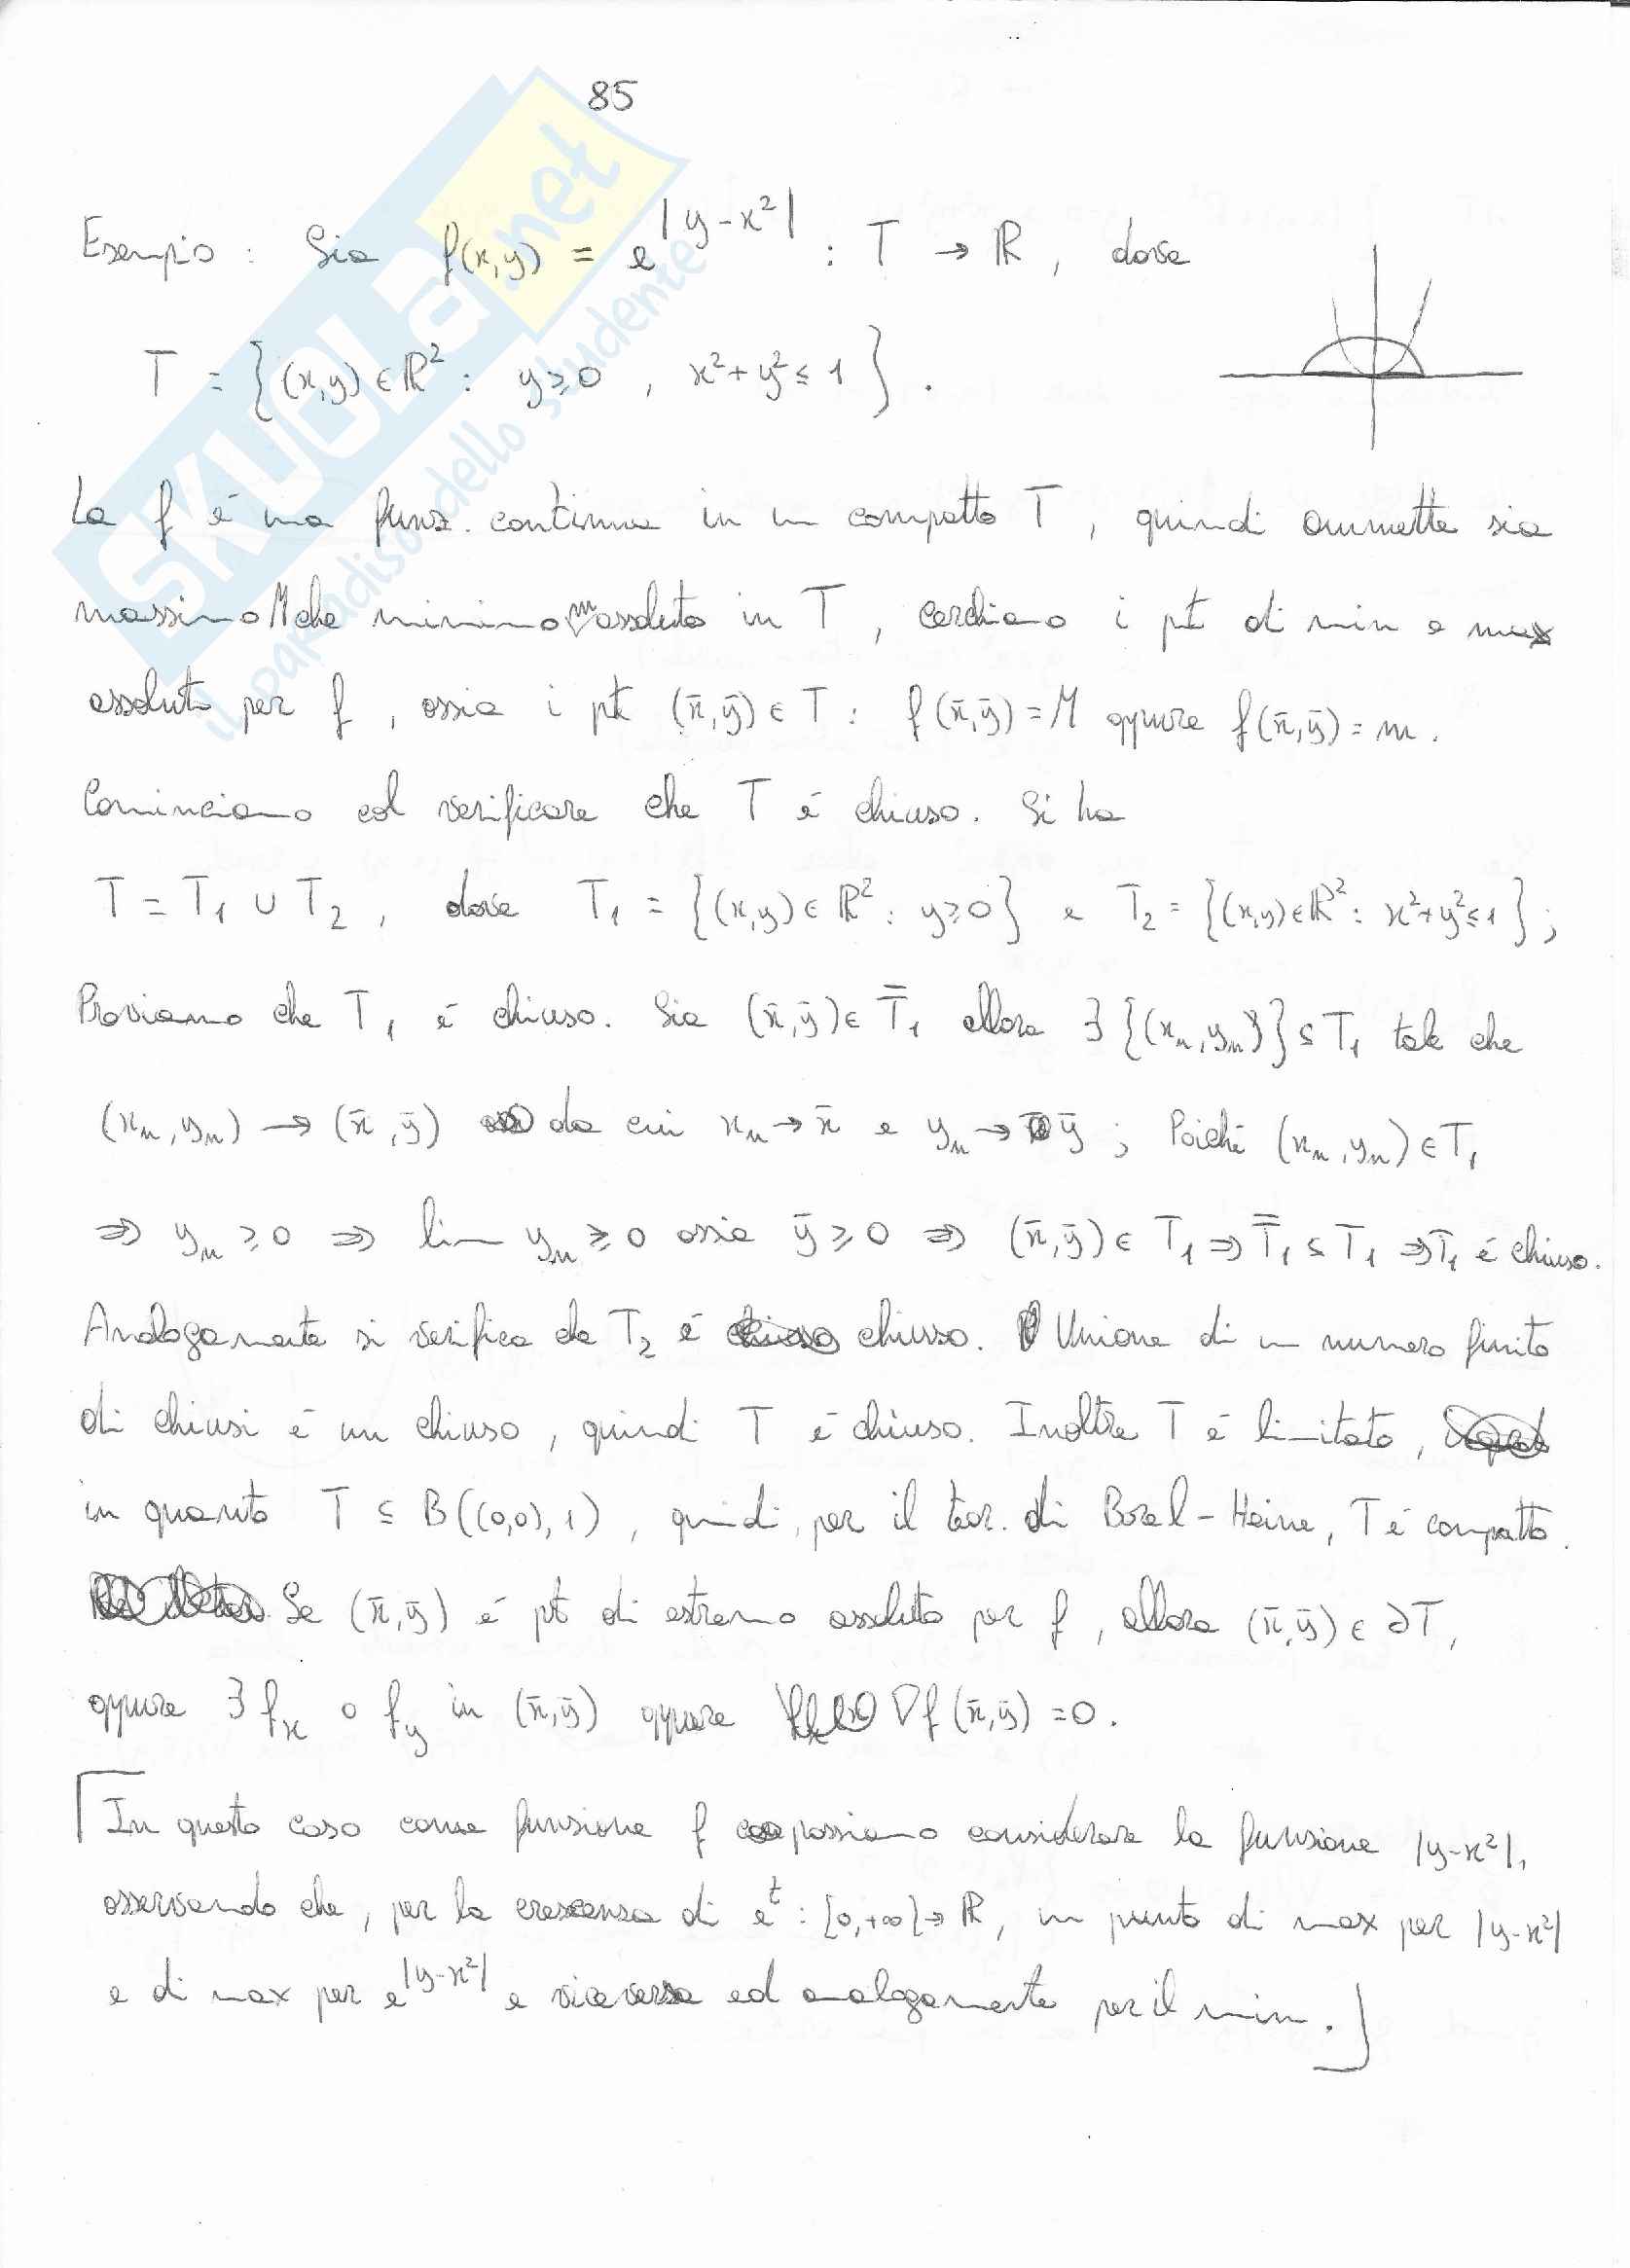 85
Esempio : Sia f(x,y) = e^|y-x²| : T → ℝ , dove
T = {(x,y) ∈ ℝ² : y ≥ 0 , x²+y² ≤ 1 } .
La f é una funz. continua in un compatto T , quindi ammette sia
massimo M che minimo m assoluto in T , cerchiamo i pt di min e max
assoluto per f , ossia i pt (x̄,ȳ) ∈ T : f(x̄,ȳ) = M oppure f(x̄,ȳ) = m .
Cominciamo col verificare che T é chiuso. Si ha
T = T₁ ∪ T₂ , dove T₁ = {(x,y) ∈ ℝ² : y ≥ 0} e T₂ = {(x,y) ∈ ℝ² : x²+y² ≤ 1} ;
Proviamo che T₁ é chiuso. Sia (x̄,ȳ) ∈ T̄₁ allora ∃ {(xₙ,yₙ)} ⊆ T₁ tale che
(xₙ,yₙ) → (x̄,ȳ) da cui xₙ → x̄ e yₙ → ȳ ; Poiché (xₙ,yₙ) ∈ T₁
⇒ yₙ ≥ 0 ⇒ lim yₙ ≥ 0 ossia ȳ ≥ 0 ⇒ (x̄,ȳ) ∈ T₁ ⇒ T̄₁ ⊆ T₁ ⇒ T₁ é chiuso.
Analogamente si verifica che T₂ é chiuso. Unione di un numero finito
di chiusi é un chiuso , quindi T é chiuso. Inoltre T é limitato ,
in quanto T ⊆ B((0,0),1) , quindi, per il teor. di Borel-Heine, T é compatto.
Se (x̄,ȳ) é pt di estremo assoluto per f , allora (x̄,ȳ) ∈ ∂T ,
oppure ∃ fₓ o f_y in (x̄,ȳ) oppure ∇f(x̄,ȳ) = 0 .
In questo caso come funzione f possiamo considerare la funzione |y-x²|,
osservando che, per la crescenza di e^t : [0,+∞[ → ℝ, un punto di max per |y-x²|
e di max per e^|y-x²| e viceversa ed analogamente per il min .
SKUOLA.net
il paradiso dello studente